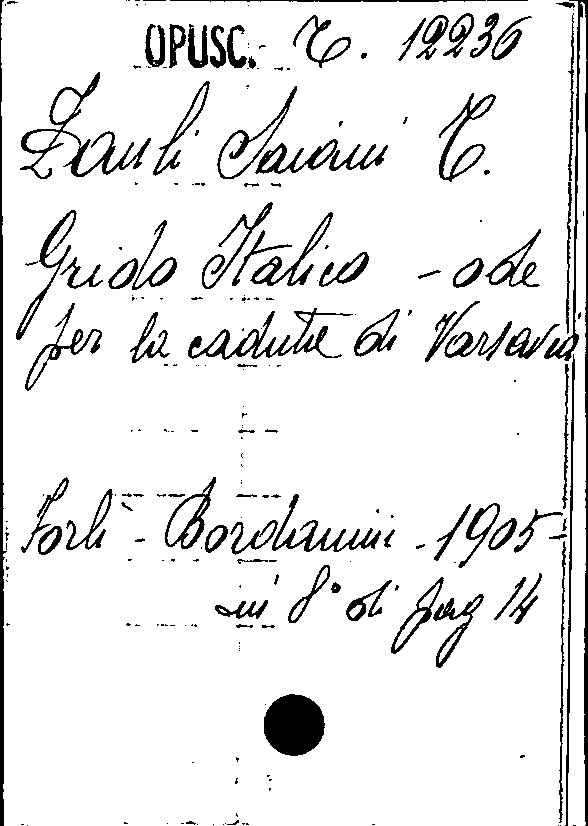 OPUSC. T. 12236
Zauli Saiani T.
Grido Italico - ode
per la caduta di Varsavia
Forlì - Bordandini - 1905 -
in 8° di pag 14